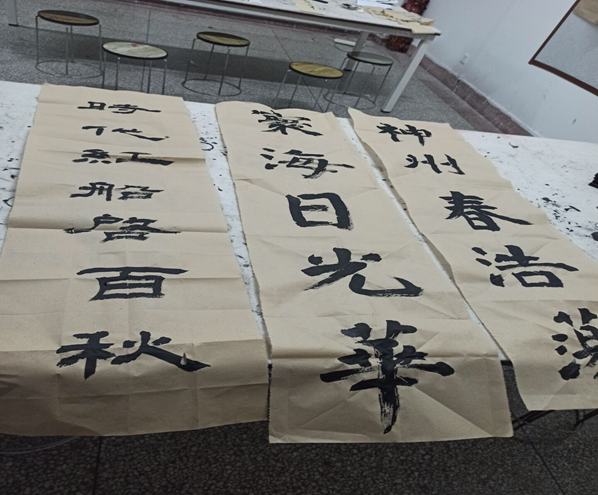 神州春浩蕩
寰海日光華
時代紅船啓百秋